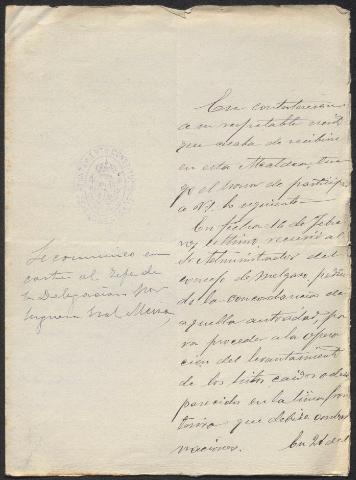 En contestacion
a su respetable
que acaba de recibirse
en esta Alcaldia, ten-
go el honor de participar
a V.S. lo siguiente.
En fecha 16 de Febre-
ro último recurrió al
Sr Administrador del
concejo de Melgaço,
de la concordancia de
aquella autoridad, pa-
ra proceder a la opera-
cion del levantamiento
de los hitos caidos o des-
parecidos en la linea fron-
teriza que divide ambas
naciones. En 21 de
Se comunico en
carta al Jefe de
la Delegacion por-
tuguesa Gral